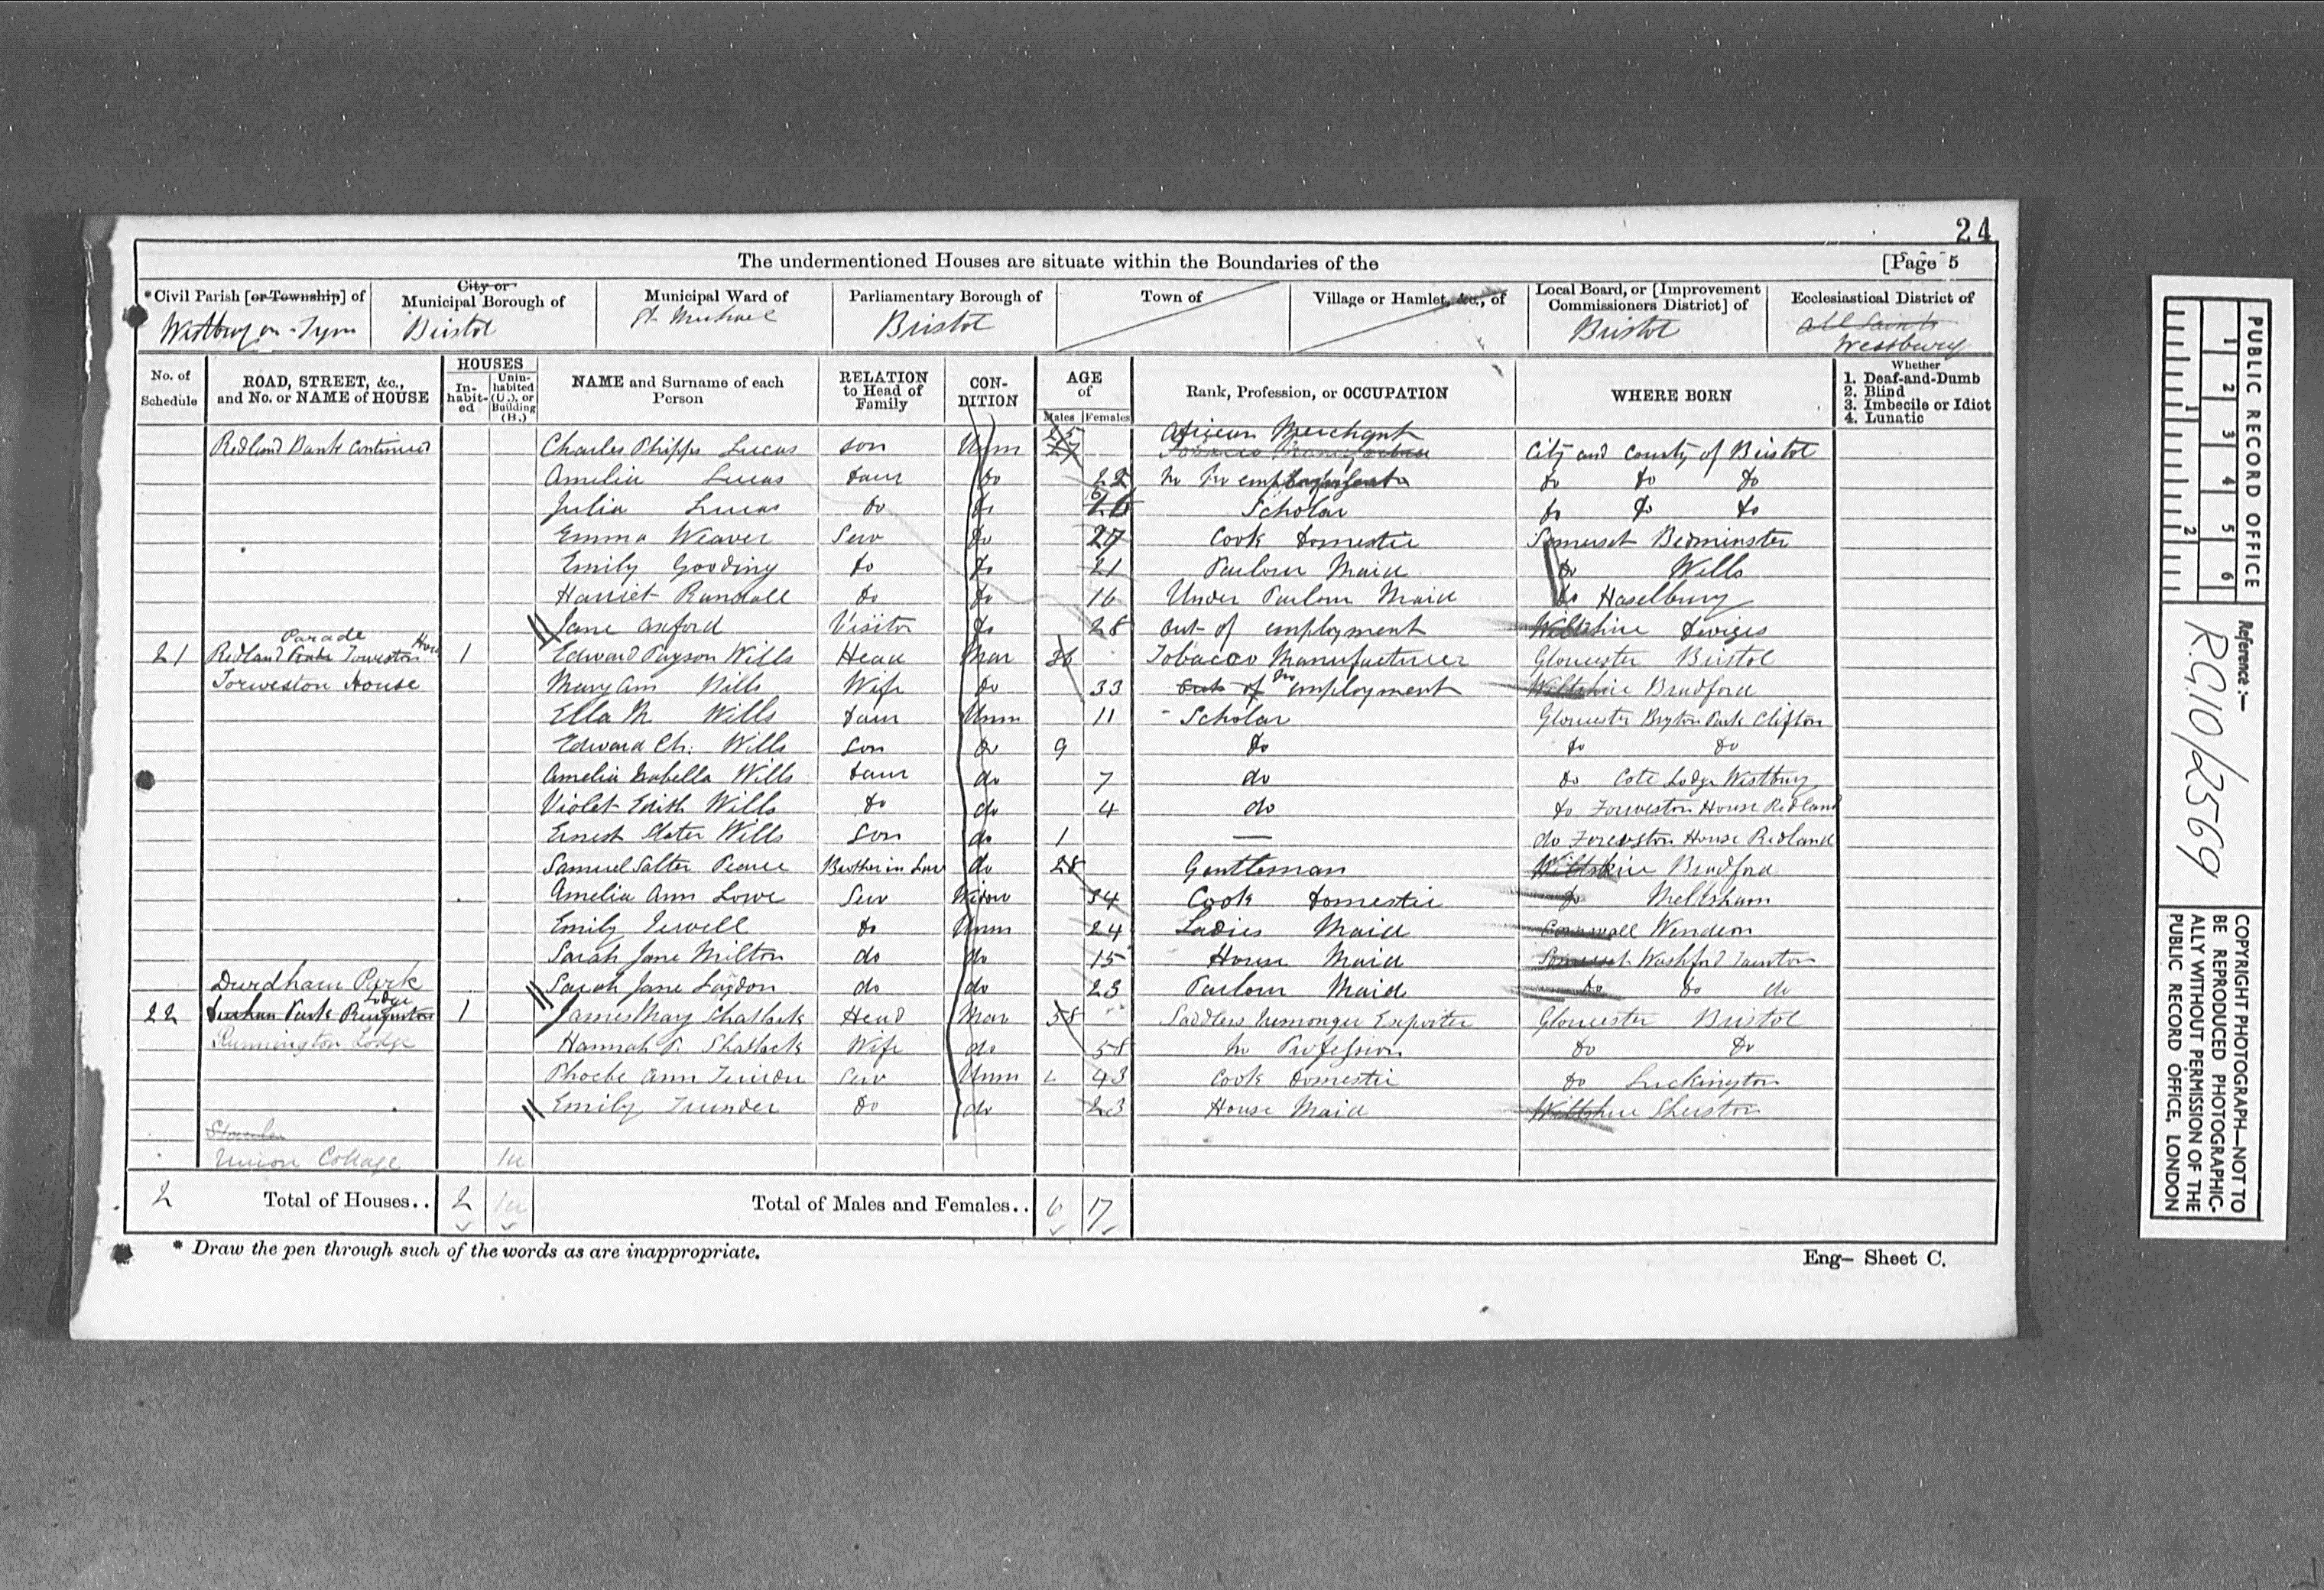 24
The undermentioned Houses are situate within the Boundaries of the [Page 5
*Civil Parish [or Township] of City or Municipal Borough of Municipal Ward of Parliamentary Borough of Town of Village or Hamlet, &c., of Local Board, or [Improvement Commissioners District] of Ecclesiastical District of
Westbury on Trym Bristol St Michael Bristol Bristol All Saints Westbury
No. of Schedule ROAD, STREET, &c., and No. or NAME of HOUSE HOUSES Inhabited Uninhabited (U.), or Building (B.) NAME and Surname of each Person RELATION to Head of Family CONDITION AGE of Males Females Rank, Profession, or OCCUPATION WHERE BORN Whether 1. Deaf-and-Dumb 2. Blind 3. Imbecile or Idiot 4. Lunatic
Redland Bank Continued Charles Phipps Lucas son Unm 25 African Merchant City and County of Bristol
Amelia Lucas Daur Do 22 Do Do Do
Julia Lucas Do Do Scholar Do Do Do
Emma Weaver Serv Do Cook Domestic Somerset Bedminster
Emily Gooding Do Do 21 Parlour Maid Do Wells
Harriet Randall Do Do 16 Under Parlour Maid Do Haselbury
Jane Axford Visitor Do 28 Out of employment Wiltshire Devizes
21 Redland Parade Torweston House 1 Edward Payson Wills Head Mar 36 Tobacco Manufacturer Gloucester Bristol
Torweston House Mary Ann Wills Wife Do 33 employment Wiltshire Bradford
Ella M Wills Daur Unm 11 Scholar Gloucester Park Clifton
Edward Ch. Wills Son Do 9 Do Do Do
Amelia Isabella Wills Daur do 7 do Do Cote Lodge Westbury
Violet Edith Wills Do do 4 do Do Torweston House Redland
Ernest Slater Wills Son do 1 — do Torweston House Redland
Samuel Salter Pearce Brother in Law do 28 Gentleman Wiltshire Bradford
Amelia Ann Lowe Serv Widow 34 Cook Domestic Do Melksham
Emily Do Unm 24 Ladies Maid Cornwall Wendron
Sarah Jane Milton do do 15 House Maid Somerset Washford Taunton
Durdham Park Sarah Jane do do 23 Parlour Maid Do Do do
22 Lodge 1 James May Shattock Head Mar 58 Saddlers Iremonger Exporter Gloucester Bristol
Lodge Hannah P. Shattock Wife do 58 No Profession Do Do
Phoebe Ann Serv Unm 43 Cook Domestic Do Luckington
Emily Trunder Do do 23 House Maid Wiltshire Sherston
Union Cottage 1u
2 Total of Houses.. 2 1u Total of Males and Females.. 6 17
* Draw the pen through such of the words as are inappropriate. Eng- Sheet C.
PUBLIC RECORD OFFICE
1 2 3 4 5 6
1 2
Reference :-
R.G. 10/2569
COPYRIGHT PHOTOGRAPH—NOT TO
BE REPRODUCED PHOTOGRAPHIC-
ALLY WITHOUT PERMISSION OF THE
PUBLIC RECORD OFFICE, LONDON